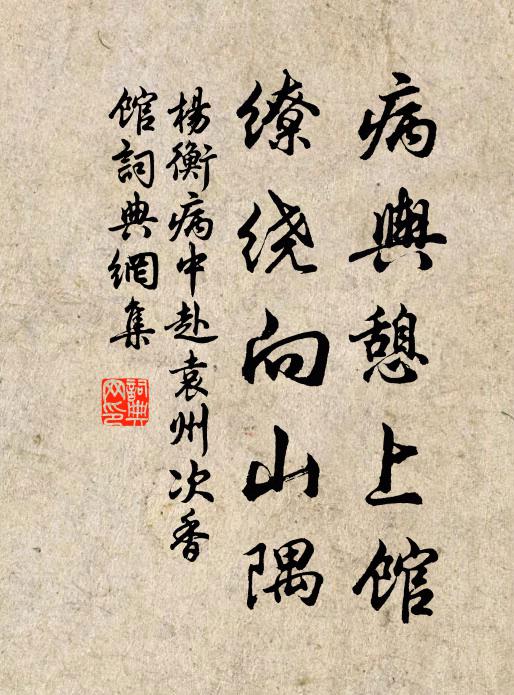 病輿憩上館
缭绕向山隅
楊衡病中赴袁州次香
館詞典網集
詞典网印